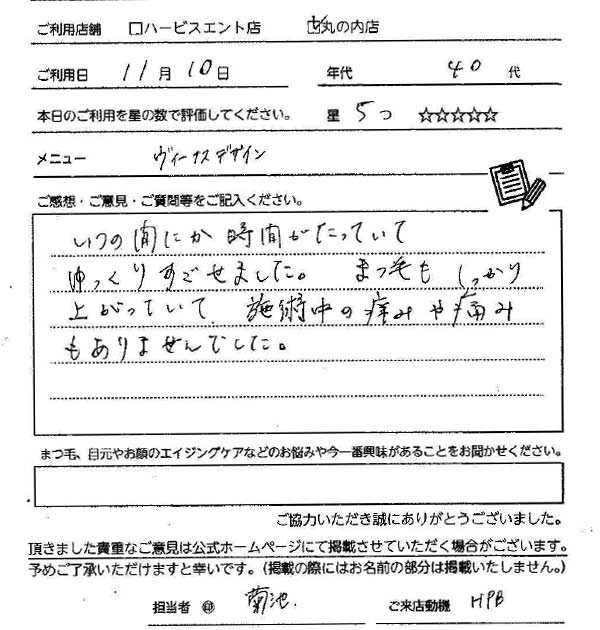 ご利用店舗 □ハービスエント店 ☑丸の内店
ご利用日 11月10日 年代 40代
本日のご利用を星の数で評価してください。 星 5つ ☆☆☆☆☆
メニュー ヴィーナスデザイン
ご感想・ご意見・ご質問等をご記入ください。
いつの間にか時間がたっていて
ゆっくりすごせました。 まつ毛もしっかり
上がっていて 施術中の痒みや痛み
もありませんでした。
まつ毛、目元やお顔のエイジングケアなどのお悩みや今一番興味があることをお聞かせください。
ご協力いただき誠にありがとうございました。
頂きました貴重なご意見は公式ホームページにて掲載させていただく場合がございます。
予めご了承いただけますと幸いです。(掲載の際にはお名前の部分は掲載いたしません。)
担当者 ㊞ 菊池. ご来店動機 HPB